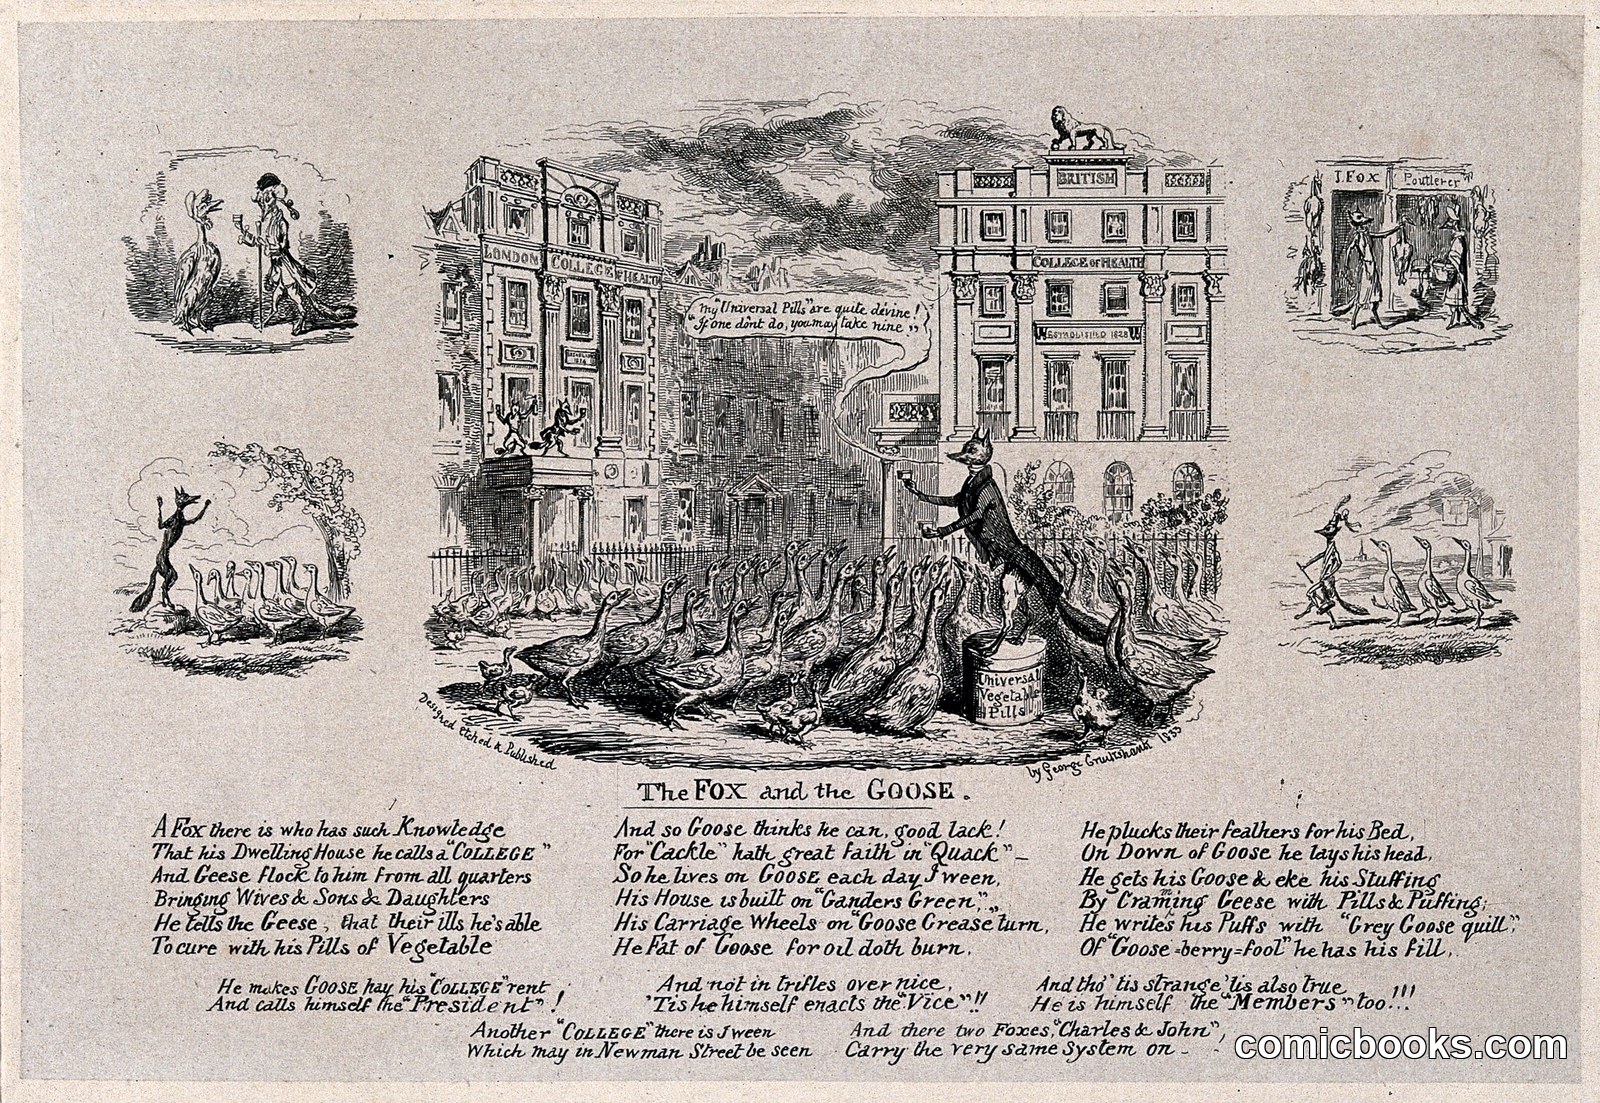 LONDON COLLEGE of HEALTH
BRITISH
COLLEGE OF HEALTH
1828
"my "Universal Pills" are quite dévine!
"If one dont do, you may take nine"
I. FOX Poutlerer
Universal
Vegetable
Pills
Designed Etched & Published
by George Cruikshank 1833
The FOX and the GOOSE.
A Fox there is who has such Knowledge
That his Dwelling House he calls a "COLLEGE"
And Geese flock to him from all quarters
Bringing Wives & Sons & Daughters
He tells the Geese, that their ills he's able
To cure with his Pills of Vegetable
And so Goose thinks he can, good lack!
For "Cackle" hath great faith in "Quack" –
So he lives on GOOSE each day I ween,
His House is built on "Ganders Green,"
His Carriage Wheels on "Goose Grease turn,
He Fat of Goose for oil doth burn,
He plucks their feathers for his Bed,
On Down of Goose he lays his head,
He gets his Goose & eke his Stuffing
By Craming Geese with Pills & Puffing;
He writes his Puffs with "Grey Goose quill";
Of "Goose=berry=fool" he has his fill,
He makes GOOSE hay his "COLLEGE" rent
And calls himself the "President"!
And not in trifles over nice,
'Tis he himself enacts the "Vice"!!
And tho' 'tis strange 'tis also true
He is himself the "Members" too!!!
Another "COLLEGE" there is I ween
Which may in Newman Street be seen
And there two Foxes, "Charles & John",
Carry the very same System on –
comicbooks.com